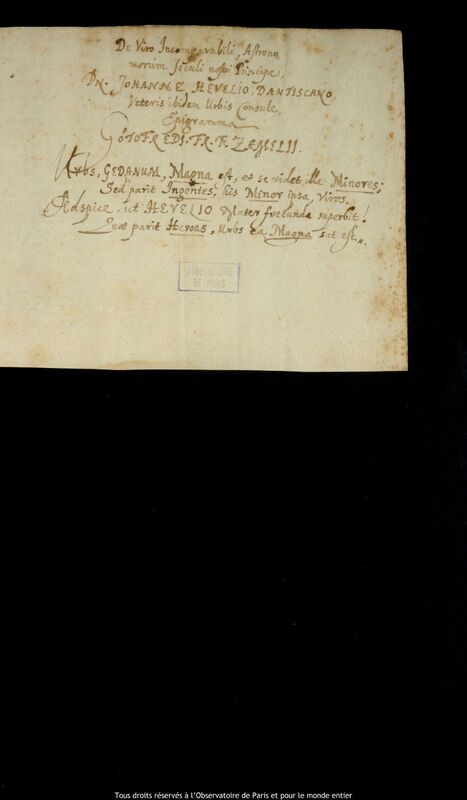 De Viro Incomparabili, Astrono
morum seculi nostri Principe,
DN. JOHANNE HEVELIO, DANTISCANO
Veteris ibidem Urbis Consule,
Epigramma
GOTOFREDI. FR. F. ZAMELII.
Urbs, GEDANUM, Magna est, et se videt illa Minores;
Sed parit Ingentes, his Minor ipsa, Viros.
Adspice, ut HEVELIO Mater foecunda superbit!
Quae parit Heroas, Urbs ea Magna sat est.
OBSERVATOIRE
DE PARIS
Tous droits réservés à l'Observatoire de Paris et pour le monde entier